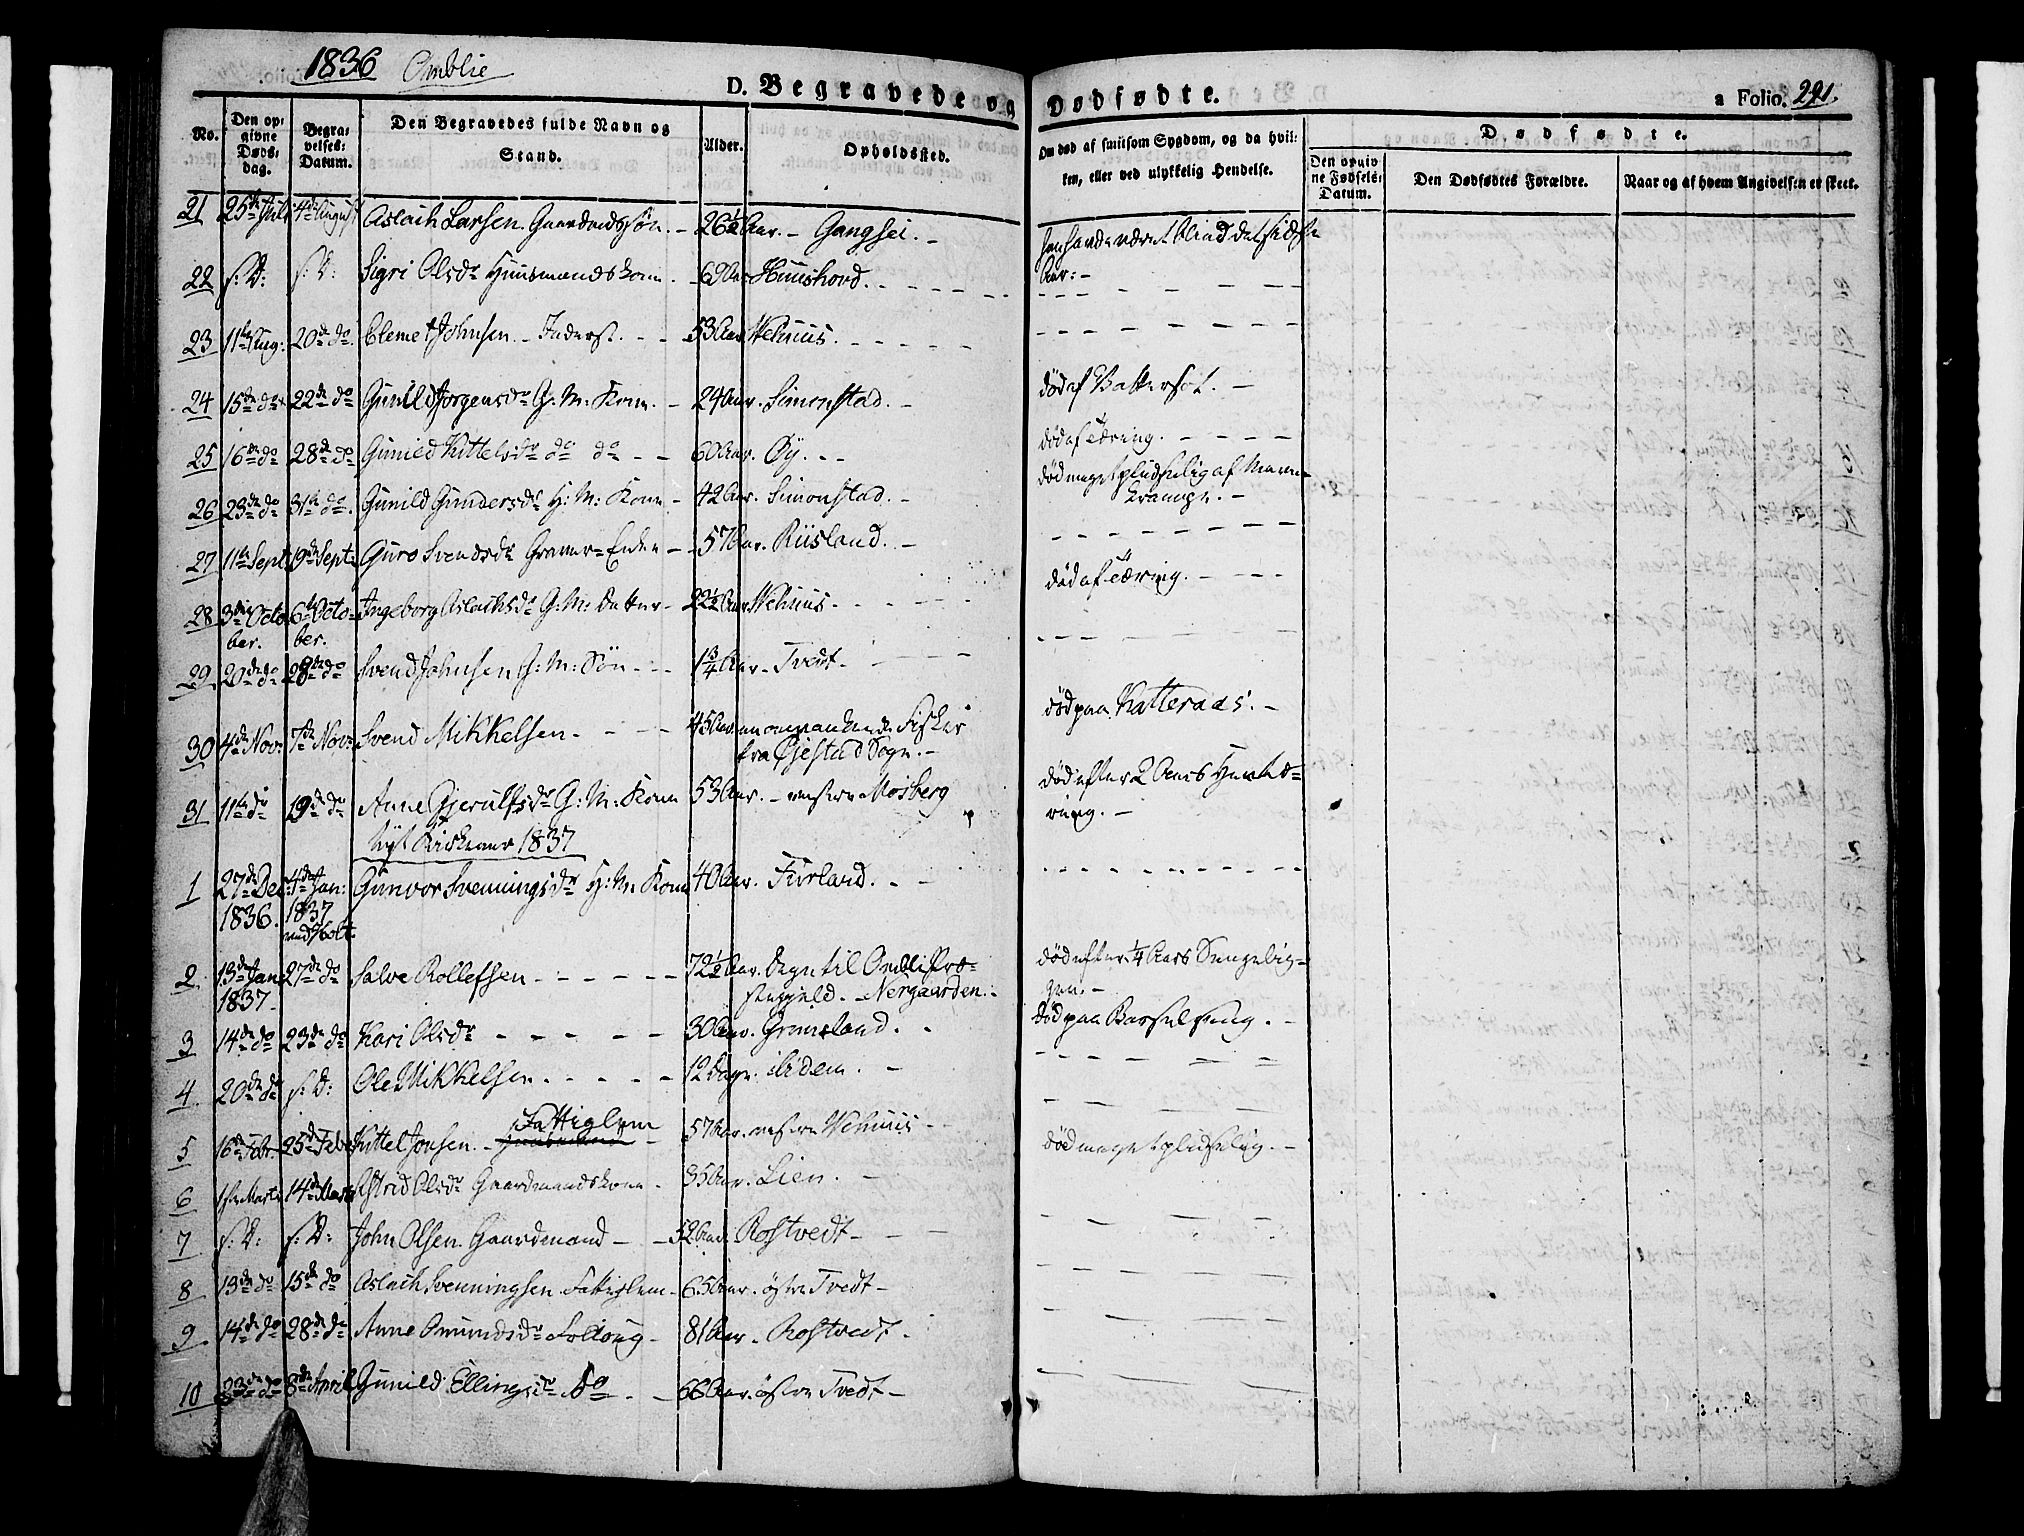 1836 Omblie
D. Begravede og Dødfødte.
a Folio. 291.
No.
Den opgivne Døds-dag.
Begravelses-Datum.
Den Begravedes fulde Navn og Stand.
Alder.
Opholdssted.
Om død af smitsom Sygdom, og da hvilken, eller ved ulykkelig Hendelse.
Dødfødte.
Den opgivne Fødsels-Datum.
Den Dødfødtes Forældre.
Naar og af hvem Angivelsen er skeet.
21 25de Juli 4de August Aslach Larsen Gaardmdssøn. - 26½ Aar. - Gangsei. - han havde været blind det sidste Aar: -
22 s: D: s: D: Sigri Olsdr Huusmandskone - 69 Aar Huushovd.
23 11te Aug: 20de do. Clemet Johnsen - Inderst. - - 53 Aar Wehuus.
24 15de do 22de do Gunild Jørgensdr G: M: Kone. - 24 Aar. Simonstad. - død af Vattersot. -
25 16de do 28de do Gunild Kittelsdr do do - - 60 Aar. Øy. - - død af Tæring.
26 23de do 31te do. Gunild Gundersdr H: M: Kone - 42 Aar. Simonstad. - død meget pludselig af Mavekrampe. -
27 11te Sept: 19de Sept: Guro Svendsdr - 57 Aar. Riisland. -
28 3die October. 6te October. Ingeborg Aslachsdr G: M: Datter - 22½ Aar Wehuus. død af Tæring.
29 20de do 28de do Svend Johnsen G: M: Søn - - - 1¾ Aar. Tvedt.
30 4de Nov: 7de Nov: Svend Mikkelsen. 45 Aar. en omvankende Fisker fra Øjestad Sogn. - død paa Katteraas. -
31 11te do 19de do Anne Gjerulfsdr G: M: Kone 53 Aar. - vestre Mosberg død efter 2 Aars
Nyt Kirkeaar 1837
1 27de Dec: 1836. 4de Jan: 1837 Gunvor Svenningsdr H: M: Kone 40 Aar. Furland. -
2 13de Jan: 1837. 27de do Salve Rollefsen 72½ Aar. Degn til Omblie Præstegjeld. - Nergaarden. - død efter ¼ Aars Sengeliggen. -
3 14de do 23de do Kari Olsdr 30 Aar. Grimsland. død paa Barselseng. -
4 20de do s: D: Ole Mikkelsen. 12 Dage. ibidem. -
5 16de Febr. 25de Febr Kittel Jonsen. - Fattiglem 57 Aar. vestre Wehuus - død meget pludselig. -
6 1ste Marts 14de Marts Astrid Olsdr Gaardmandskone - 35 Aar. Lien. -
7 s: D: s: D: John Olsen. Gaardmand - - 52 Aar. Rostvedt -
8 13de do 15de do Aslach Svenningsen Fattiglem - 65 Aar. østre Tvedt -
9 14de do 28de do Anne Omundsdr Folloug - 81 Aar - Rostvedt.
10 23de do 8de April Gunild Ellingsdr do - 66 Aar. østre Tvedt -